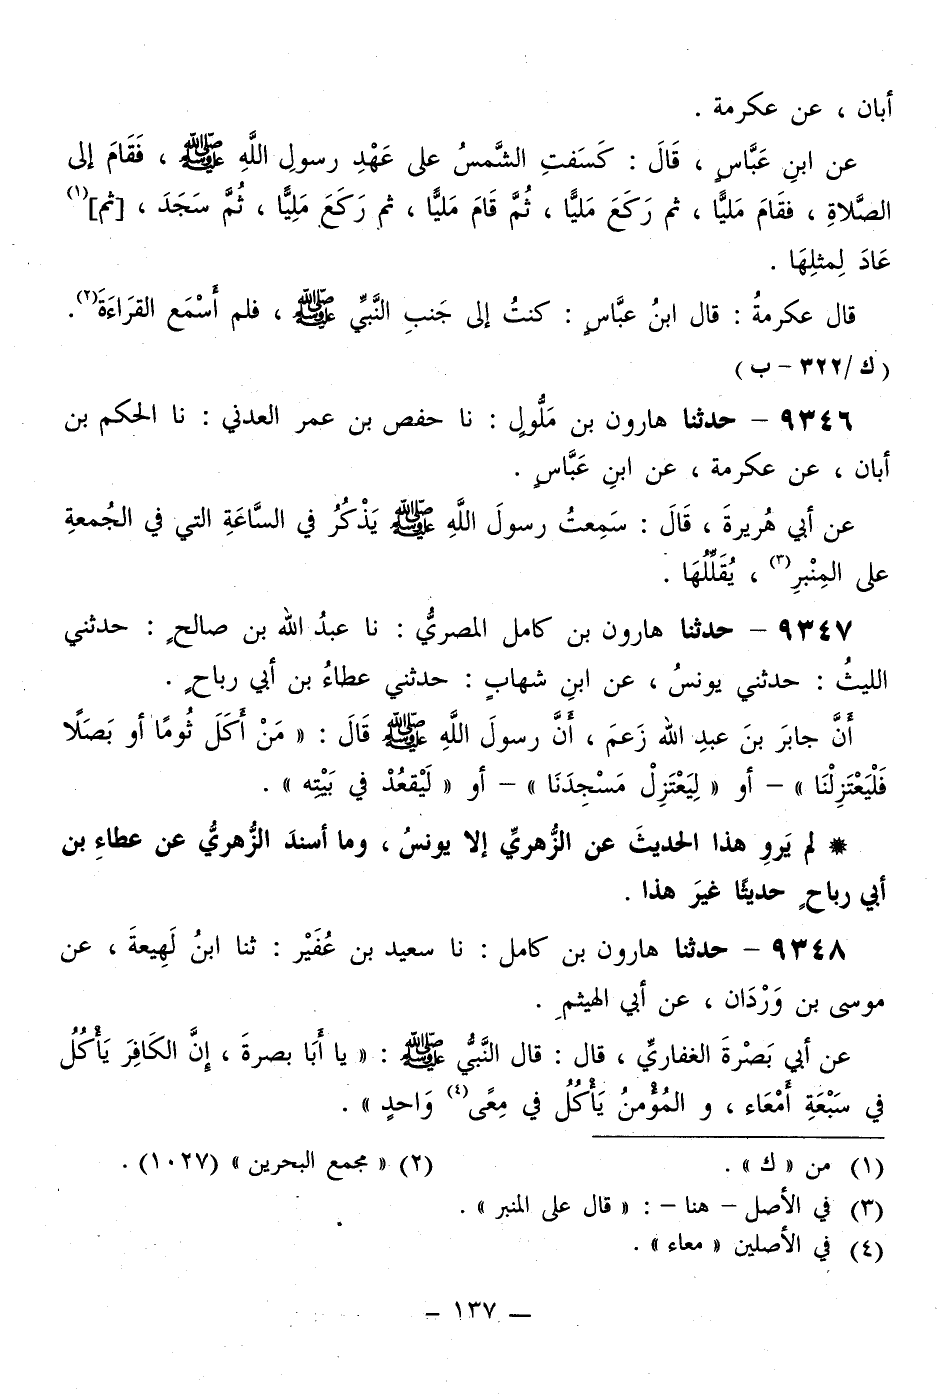 أبان ، عن عكرمة .
عن ابنِ عَبَّاسٍ ، قَالَ : كَسَفتِ الشَّمسُ على عَهْدِ رسولِ اللَّهِ ﷺ ، فَقَامَ إلى
الصَّلاةِ ، فقَامَ مَليًّا ، ثم رَكَعَ مَليًّا ، ثُمَّ قَامَ مَليًّا ، ثم ركَعَ مَلِيًّا ، ثُمَّ سَجَدَ ، [ثم](١)
عَادَ لِمثلِهَا .
قال عكرمةُ : قال ابنُ عبَّاسٍ : كنتُ إلى جَنبِ النَّبيِّ ﷺ ، فلم أَسْمَع القرَاءَةَ(٢).
(ك/٣٢٢ - ب)
٩٣٤٦ - حدثنا هارون بن مَلُّولٍ : نا حفص بن عمر العدني : نا الحكم بن
أبان ، عن عكرمة ، عن ابنِ عَبَّاسٍ .
عن أبي هُريرةَ ، قَالَ : سَمِعتُ رسولَ اللَّهِ ﷺ يَذْكُرُ في السَّاعَةِ التي في الجُمعةِ
على المِنْبرِ(٣) ، يُقَلِّلُهَا .
٩٣٤٧ - حدثنا هارون بن كامل المصريُّ : نا عبدُ الله بن صالحٍ : حدثني
الليثُ : حدثني يونسُ ، عن ابنِ شهابٍ : حدثني عطاءُ بن أبي رباحٍ .
أَنَّ جابرَ بنَ عبدِ الله زَعمَ ، أَنَّ رسولَ اللَّهِ ﷺ قَالَ : « مَنْ أَكَلَ ثُومًا أو بَصَلًا
فَلْيَعْتَزِلْنَا » - أو « لِيَعْتَزِلْ مَسْجِدَنَا » - أو « لَيْقعُدْ في بَيْتِه » .
* لم يَروِ هذا الحديثَ عن الزُّهريِّ إلا يونسُ ، وما أسندَ الزُّهريُّ عن عطاءِ بن
أبي رباحٍ حديثًا غيرَ هذا .
٩٣٤٨ - حدثنا هارون بن كامل : نا سعيد بن عُفَيْر : ثنا ابنُ لَهِيعةَ ، عن
موسى بن وَرْدَان ، عن أبي الهيثمِ .
عن أبي بَصْرةَ الغفاريِّ ، قال : قال النَّبيُّ ﷺ : « يا أَبَا بصرةَ ، إِنَّ الكَافِرَ يَأْكُلُ
في سَبْعَةِ أَمْعَاء ، و المُؤْمنُ يَأْكُلُ في مِعًى(٤) وَاحدٍ » .
(١) من « ك » . (٢) « مجمع البحرين » (١٠٢٧) .
(٣) في الأصل - هنا - : « قال على المنبر » .
(٤) في الأصلين « معاء » .
— ١٣٧ —